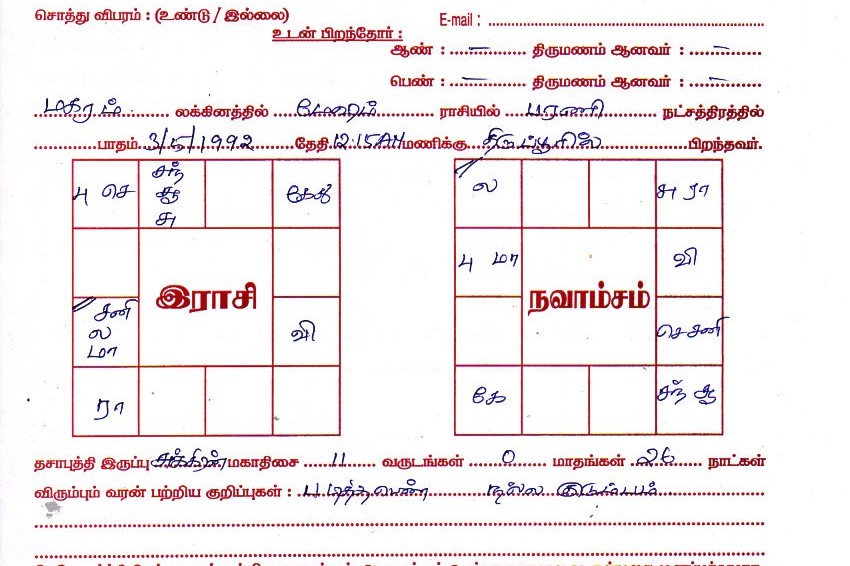 சொத்து விபரம் : (உண்டு / இல்லை) E-mail : ....................
உடன் பிறந்தோர் :
ஆண் : ....–.......... திருமணம் ஆனவர் : ....–........
பெண் : ....–.......... திருமணம் ஆனவர் : ....–........
மகரம் லக்கினத்தில் மேஷம் ராசியில் பரணி நட்சத்திரத்தில்
பாதம். 3/5/1992 தேதி 12.15AM மணிக்கு திருப்பூரில் பிறந்தவர்.
பு செ
சந்
சூ
சு
கேது
சனி
ல
மா
இராசி
வி
ரா
ல
சு ரா
பு மா
நவாம்சம்
வி
செ சனி
கே
சந் சூ
தசாபுத்தி இருப்பு சுக்கிரன் மகாதிசை 11 வருடங்கள் 0 மாதங்கள் 26 நாட்கள்
விரும்பும் வரன் பற்றிய குறிப்புகள் : படித்த பெண் நல்ல குடும்பம்